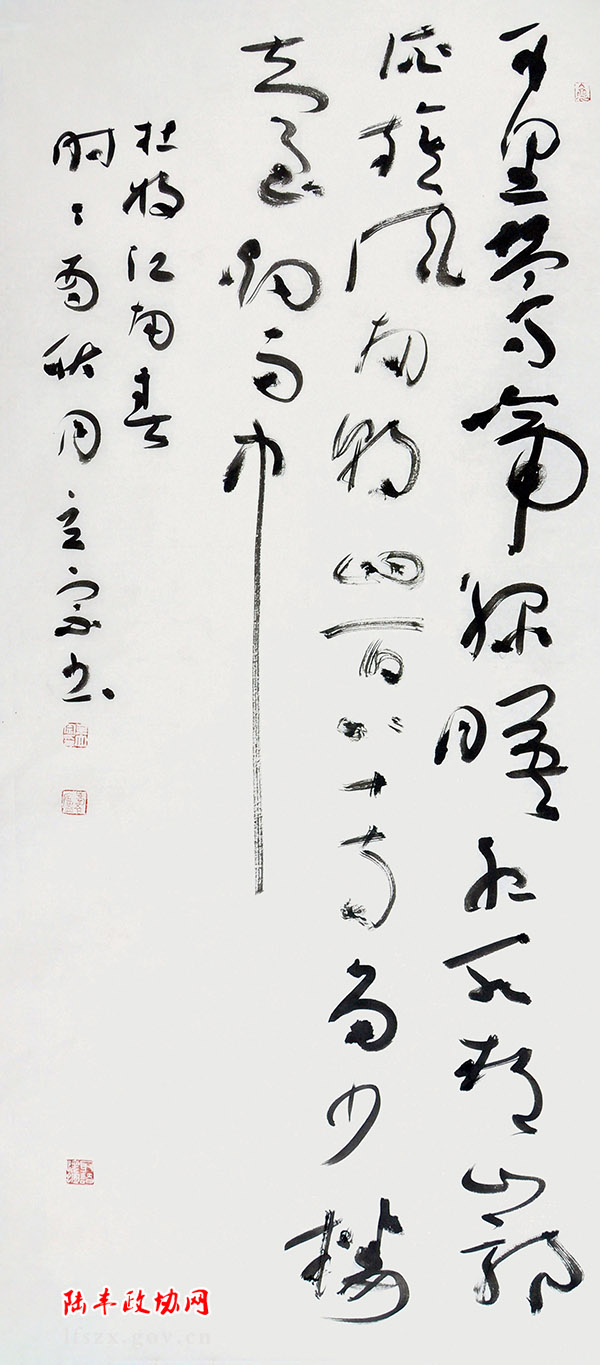 千里鶯啼綠映紅水村山郭
酒旗風南朝四百八十寺多少樓
臺煙雨中
杜牧江南春
时乙酉秋月立家书
陆丰政协网
lfszx.gov.cn